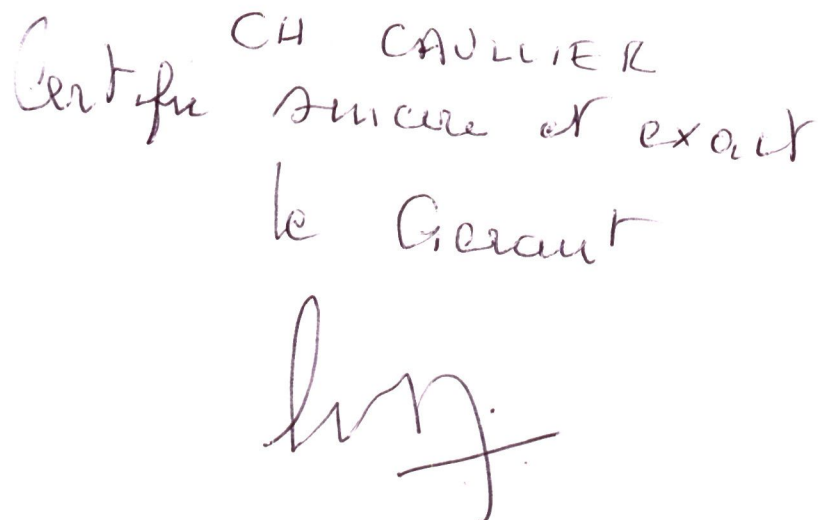 CH CAULLIER
Certifié sincère et exact
le Gerant